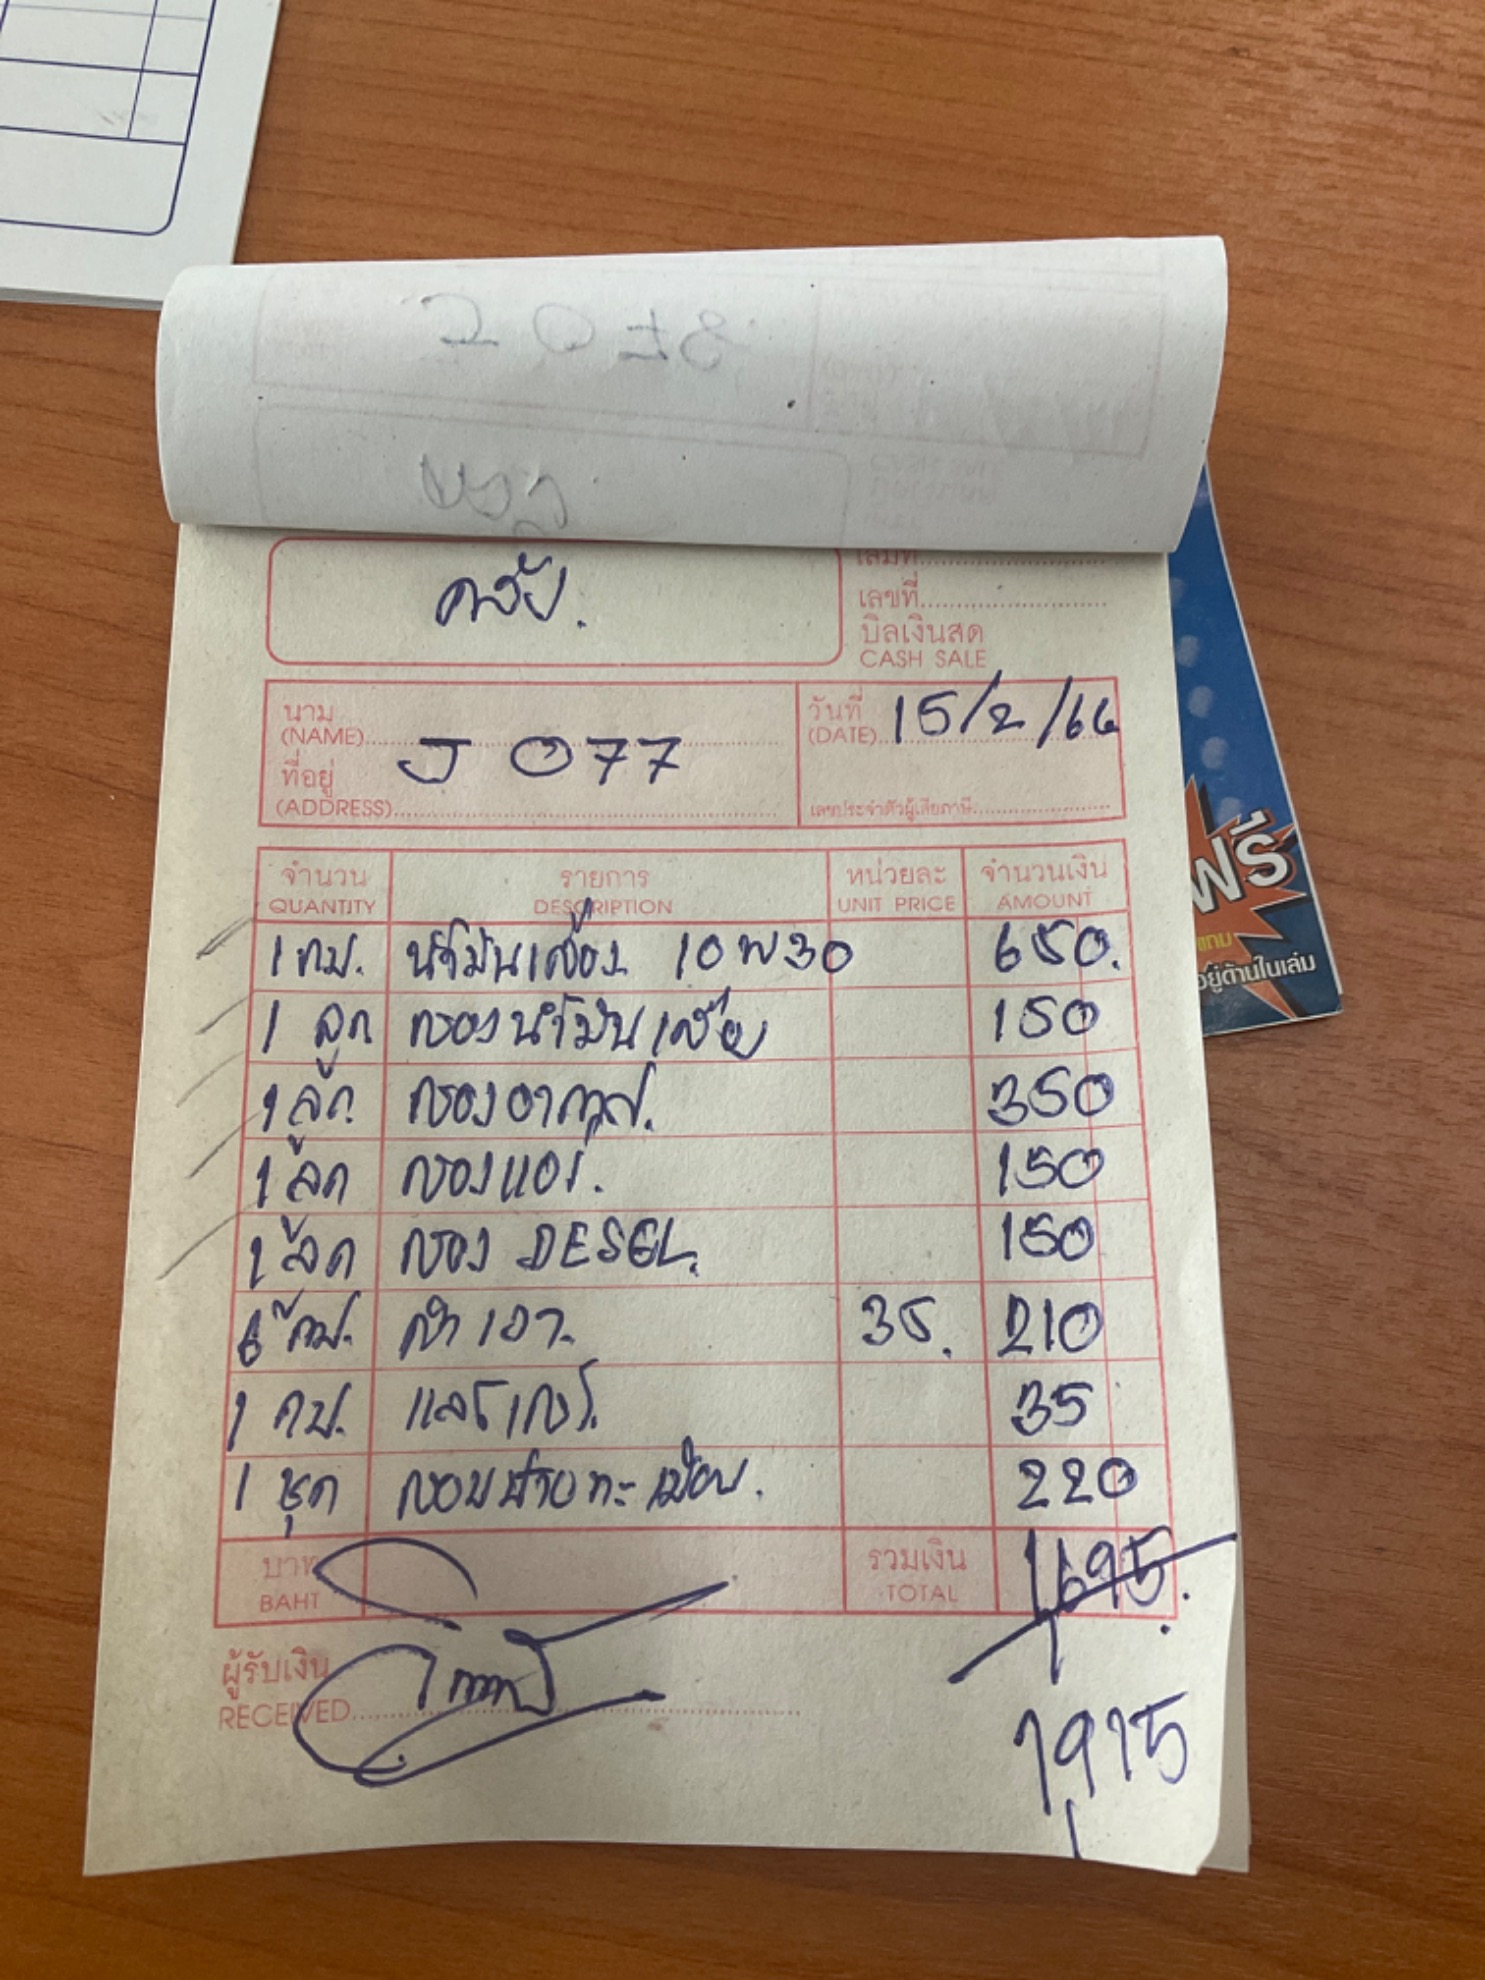 เล่มที่
เลขที่
บิลเงินสด
CASH SALE
นาม
(NAME) J 077
ที่อยู่
(ADDRESS)
วันที่
(DATE) 15/2/66
เลขประจำตัวผู้เสียภาษี
จำนวน รายการ หน่วยละ จำนวนเงิน
QUANTITY DESCRIPTION UNIT PRICE AMOUNT
1 กป. น้ำมันเครื่อง 10W30 650.
1 ลูก กรองน้ำมันเครื่อง 150
1 ลูก กรองอากาศ. 350
1 ลูก กรองแอร์. 150
1 ลูก กรอง DESEL. 150
6 กป. 35. 210
1 กป. 35
1 ชุด กรอบป้ายทะเบียน. 220
บาท
BAHT
รวมเงิน
TOTAL
1,695.
1,915
ผู้รับเงิน
RECEIVED
ฟรี
แถม
อยู่ด้านในเล่ม